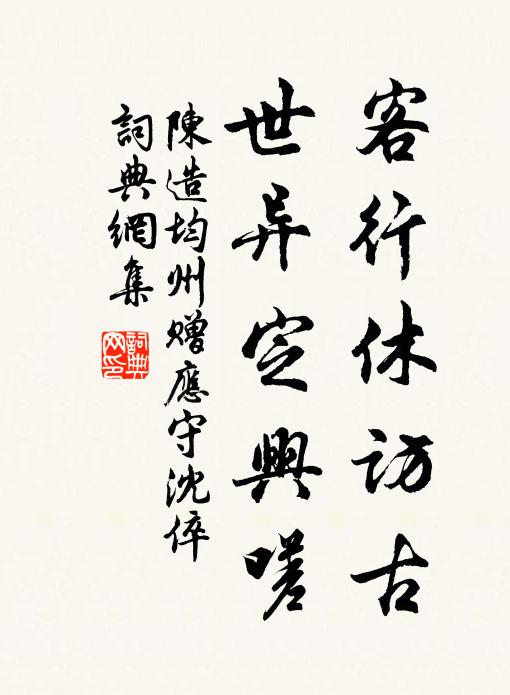 客行休訪古
世异定興嗟
陳造均州贈應守沈倅
詞典網集
詞典
网印